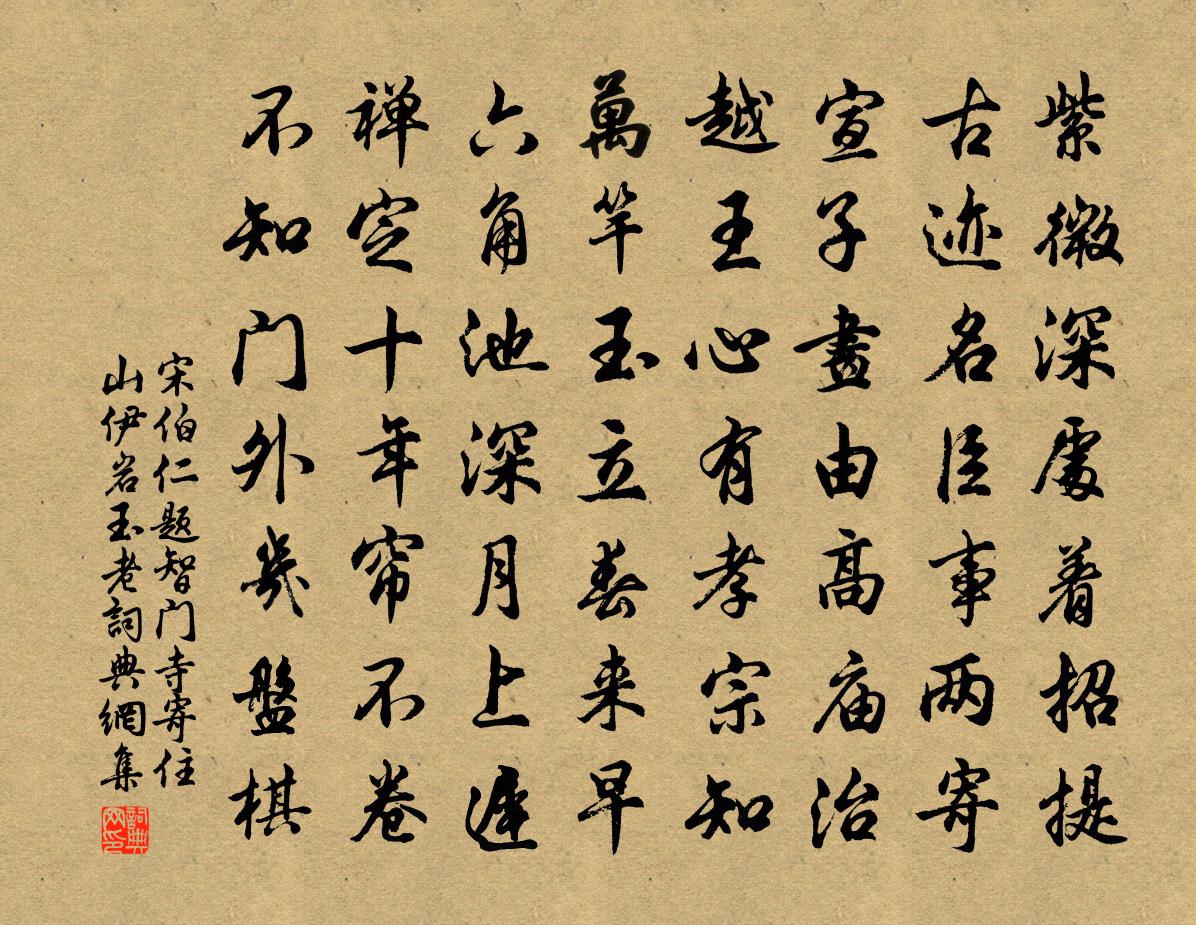 紫微深處着招提
古迹名臣事两寄
宣子畫由高庙治
越王心有孝宗知
萬竿玉立春来早
六角池深月上遲
禅定十年帘不卷
不知门外幾盤棋
宋伯仁题智门寺寄住
山伊岩玉老詞典網集
詞典网印